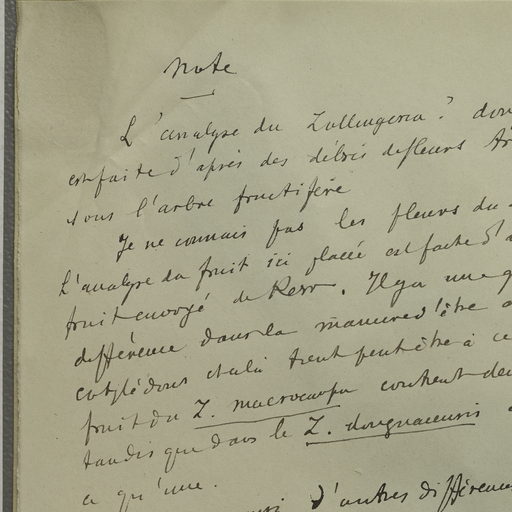 Note
L'analyse du Zollingeria? don
est faite d'après des débris de fleurs tr
sous l'arbre fructifère
Je ne connais pas les fleurs du
L'analyse du fruit ici placée est faite d'a
fruit envoyé de Kew. Il y a une
différence dans la manière d'être
cotylédons et cela tient peut être à ce
fruit du Z. macrocarpa contient de
tandis que dans le Z. dongnaiensis
a qu'une.
d'autres différences